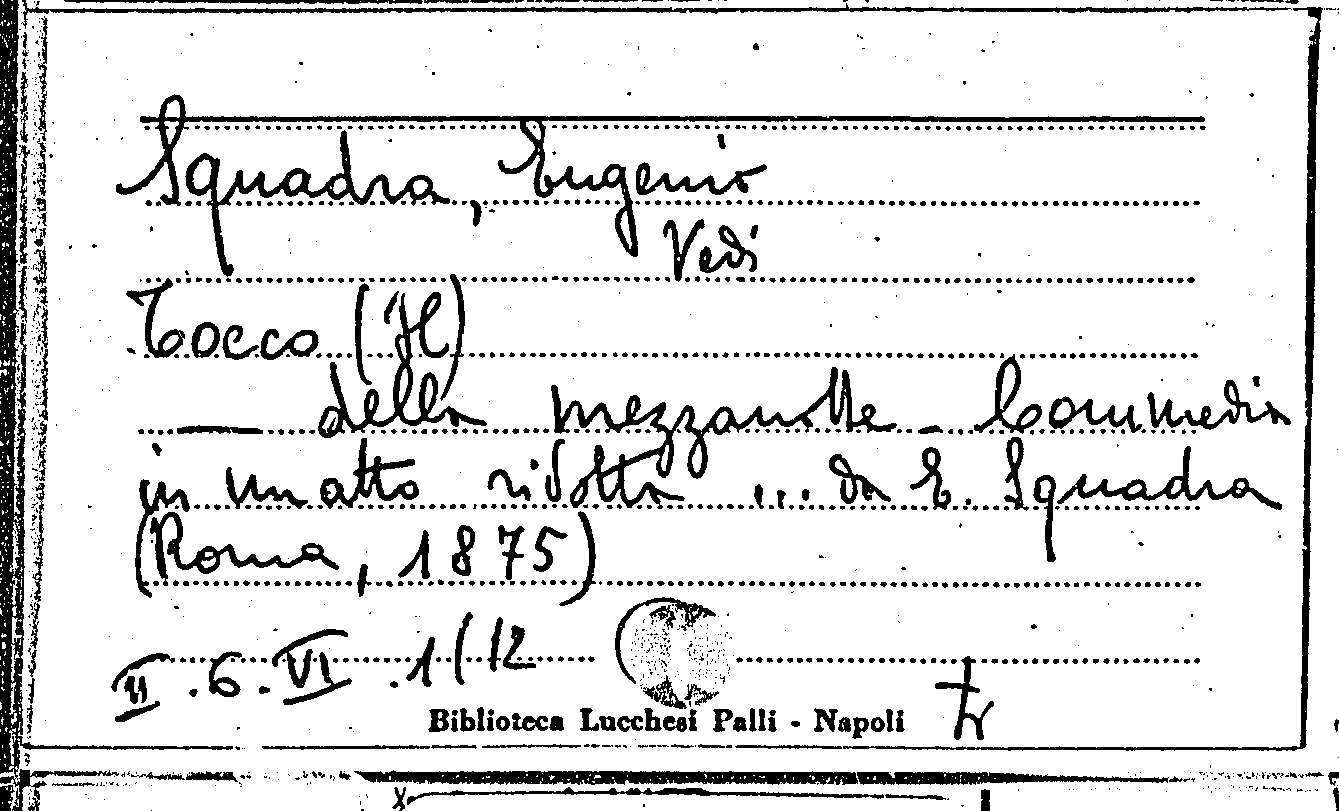 Squadra, Eugenio
Vedi
Tocco (Il)
— della mezzanotte - Commedia
in un atto ridotta ... da E. Squadra
(Roma, 1875)
II.6.VI.1/12
Biblioteca Lucchesi Palli - Napoli